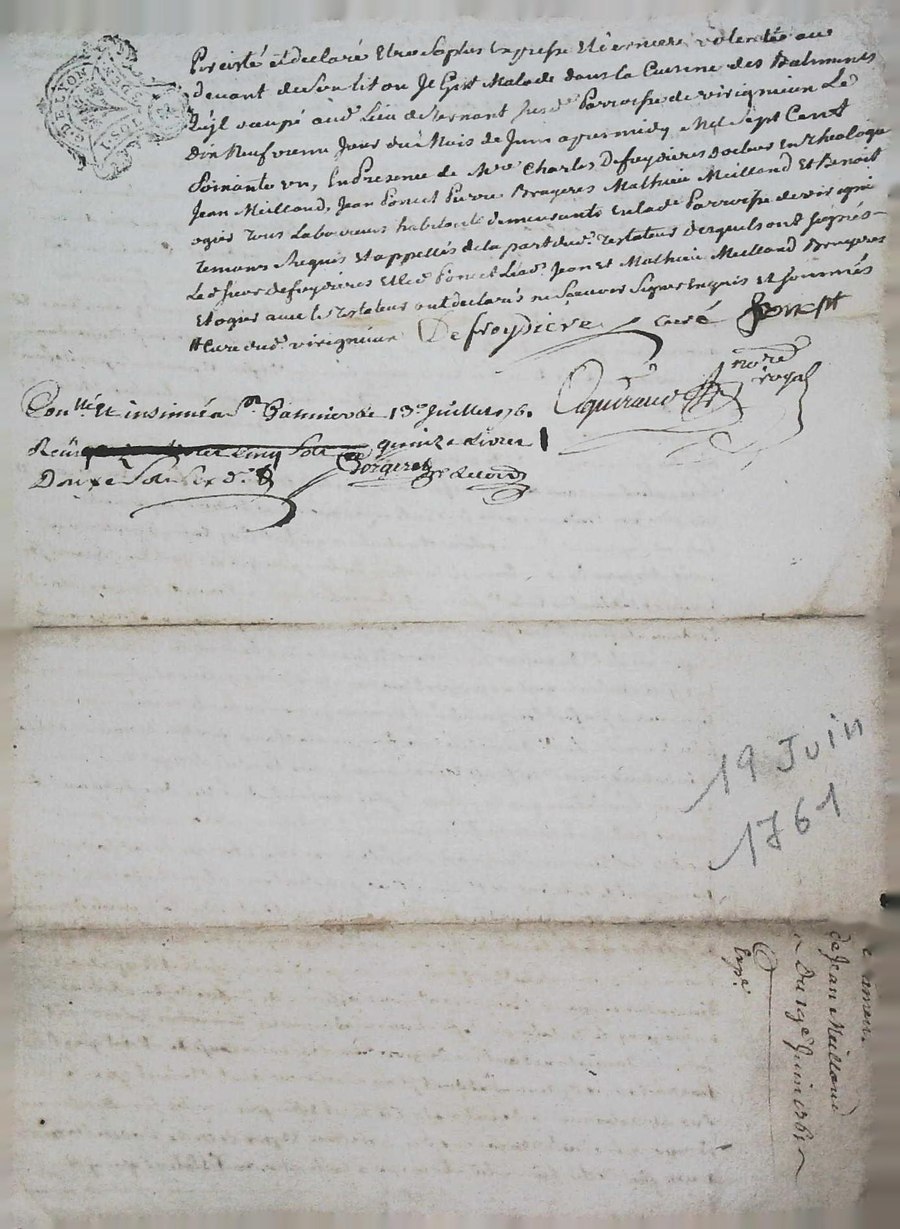 G. DE LYON
persisté et declaré etre sa plus expresse et derniere volontée au
devant de son lit ou il gist malade dans la cuisine des batiments
qu'jl occupé aud. lieu de parroisse de virignieu Le
dix neufvieme jour du Mois de Juin apres midy, Mil Sept Cent
Soixante un, En presence de Mre. Charles Defroydiere docteur en theologie
Jean Meilland, Jean Poncet Pierre Bruyeres Mathieu Meilland Et Benoit
ogier tous Laboureurs habitants demeurants en lad. Parroisse de virignieu
temoins Requis et appellés de la part dud. Testateur desquels ont signés
Led. sieur defroydiere et led. Poncet Lesd. Jean et Mathieu Meilland Bruyeres
Et ogier avec le testateur ont declarés ne scavoir signer enquis et sommés
Cure dud. virignieu Defroydiere curé Poncet
nore. royal
Conllé et insinué a St. Galmier le 13e Juillet 176.
Reçu quinze Livres
Douze Sols six d.
19 Juin
1761
de Jean Meilland
Du 19e Juin 1761
Expé.